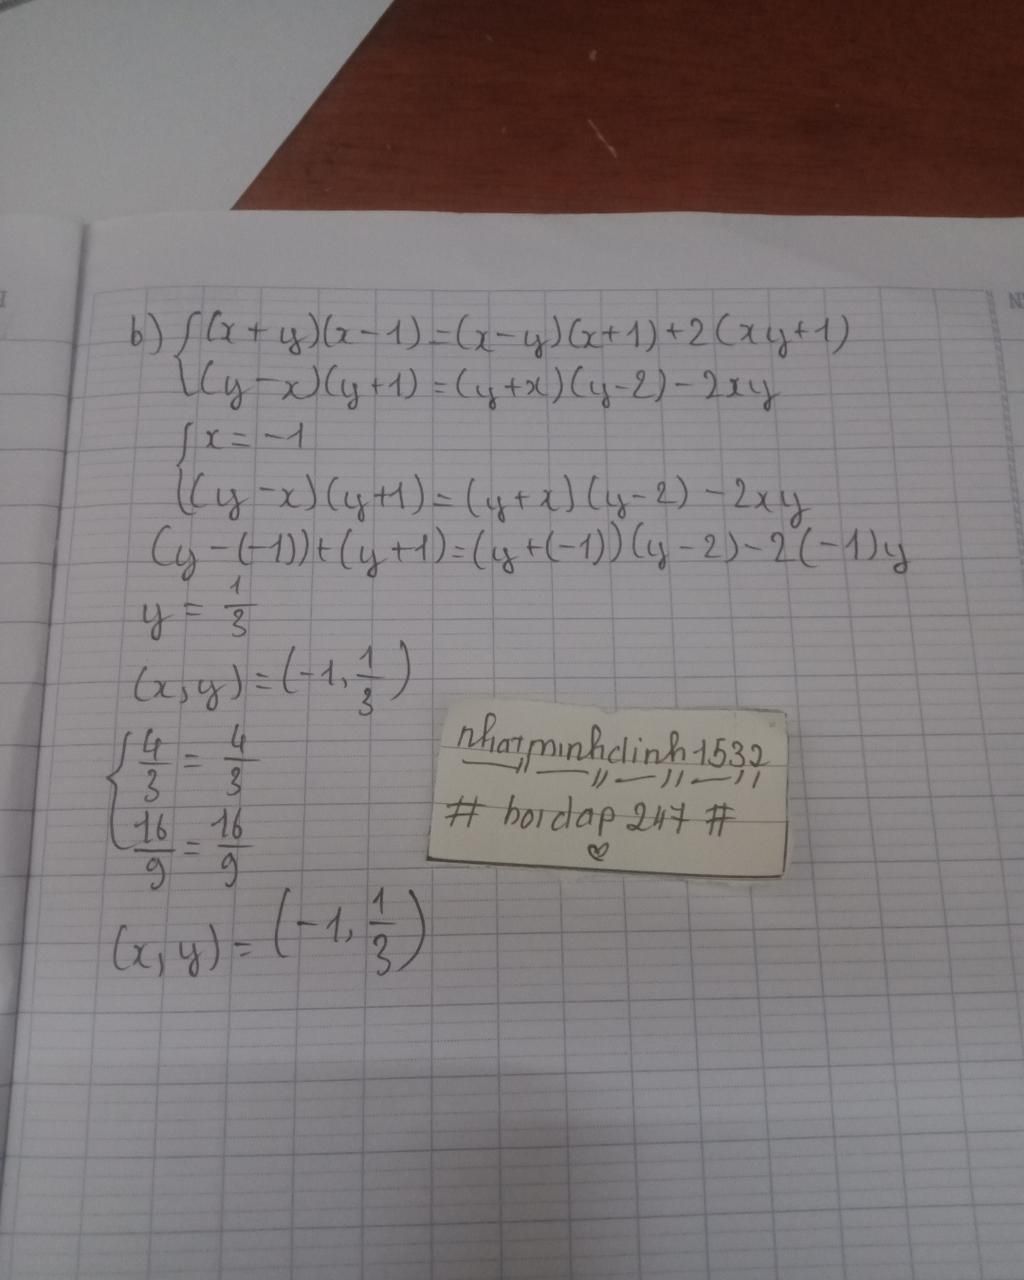 b) { (x+y)(x-1)=(x-y)(x+1)+2(xy+1)
(y-x)(y+1)=(y+x)(y-2)-2xy
{ x=-1
(y-x)(y+1)=(y+x)(y-2)-2xy
(y-(-1))+(y+1)=(y+(-1))(y-2)-2(-1)y
y = 1/3
(x,y)=(-1,1/3)
{ 4/3 = 4/3
16/9 = 16/9
(x,y)=(-1,1/3)
nhatminhdinh1532
# hoidap 247 #